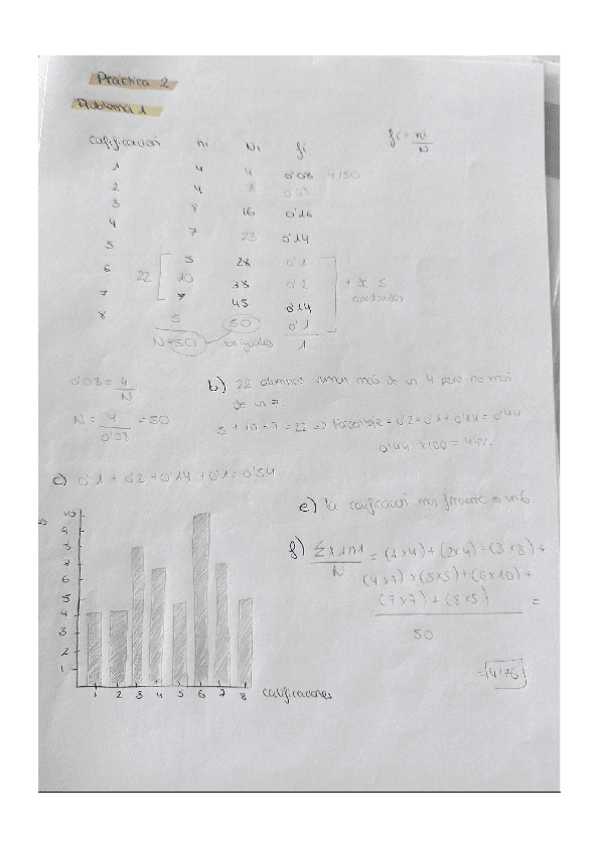 Práctica 2
Problema 1
calificación ni Ni fi fi = ni/N
1 4 4 0'08 4/50
2 4 8 0'08
3 8 16 0'16
4 7 23 0'14
5 5 28 0'1
6 10 38 0'2
7 7 45 0'14
8 5 50 0'1
22
+ de 5
aprobados
N=50 son iguales 1
0'08 = 4/N
N = 4/0'08 = 50
b) 22 alumnos sacan más de un 4 pero no más
de un 7.
5 + 10 + 7 = 22 => Porcentaje = 0'2+0'1+0'14 = 0'44
0'44 x100 = 44%
c) 0'1 + 0'2 + 0'14 + 0'1 = 0'54
e) la calificación más frecuente es un 6
f) Σxini/N = (1x4)+(2x4)+(3x8)+
(4x7)+(5x5)+(6x10)+
(7x7)+(8x5) =
50
= 4'76
10
9
8
7
6
5
4
3
2
1
1 2 3 4 5 6 7 8 calificaciones